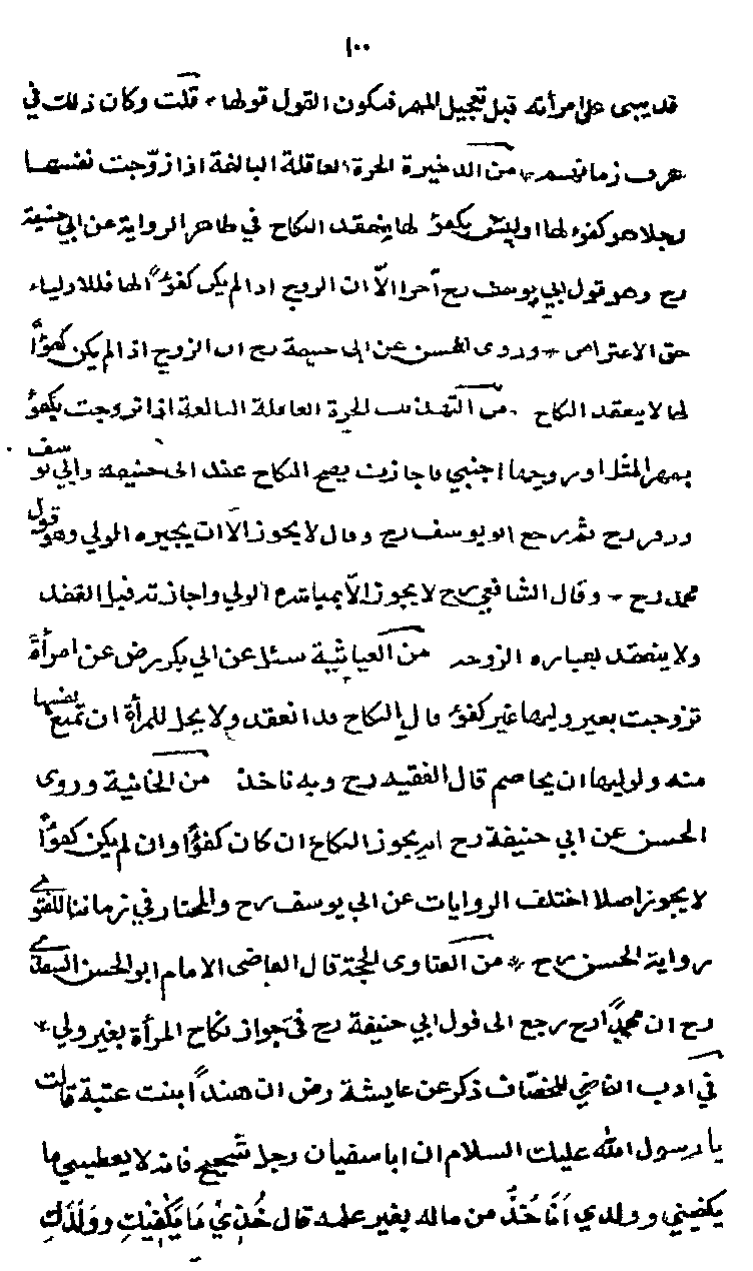 ١٠٠
قد يبنى على امرأته قبل تعجيل المهر فيكون القول قولها * قلت وكان ذلك في
عرف زمانهم * من الذخيرة الحرة العاقلة البالغة اذا زوّجت نفسها
رجلا هو كفوء لها او ليس بكفؤ لها ينعقد النكاح في ظاهر الرواية عن ابي حنيفة
رح وهو قول ابي يوسف رح آخرا الّا ان الزوج اذا لم يكن كفؤًا لها فللاولياء
حق الاعتراض * وروى الحسن عن ابي حنيفة رح ان الزوج اذا لم يكن كفوًا
لها لا ينعقد النكاح من التهذيب الحرة العاقلة البالغة اذا تزوجت بكفؤ
بمهر المثل او زوجها اجنبي فاجازت يصح النكاح عند ابي حنيفة وابي يوسف
وزفر رح ثم رجع ابو يوسف رح وقال لا يجوز الّا ان يجيزه الولي وهو قول
محمد رح * وقال الشافعي رح لا يجوز الّا بمباشرة الولي واجازته قبل العقد
ولا ينعقد بعبارة الزوجة من العياثية سئل عن ابي بكر رض عن امرأة
تزوجت بغير وليها غير كفؤ قال النكاح قد انعقد ولا يحل للمرأة ان تمنع نفسها
منه ولوليها ان يخاصم قال الفقيه رح وبه ناخذ من الخانية وروى
الحسن عن ابي حنيفة رح انه يجوز النكاح ان كان كفؤًا وان لم يكن كفوًا
لا يجوز اصلا اختلف الروايات عن ابي يوسف رح والمختار في زماننا للفتوى
رواية الحسن رح * من الفتاوى الحجة قال القاضى الامام ابو الحسن السغدى
رح ان محمدًا رح رجع الى قول ابي حنيفة رح في جواز نكاح المرأة بغير ولي *
في ادب القاضي للخصّاف ذكر عن عايشة رض ان هندًا بنت عتبة قالت
يا رسول الله عليك السلام ان ابا سفيان رجل شحيح فانه لا يعطيني ما
يكفيني وولدي اَفَآخُذُ من ماله بغير علمه قال خُذِيْ مَا يَكْفِيْكِ ووَلَدَكِ